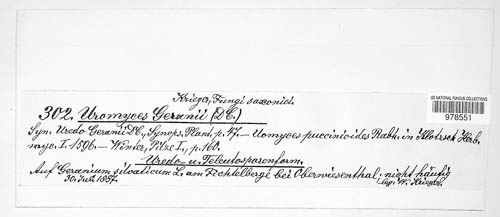 Krieger, Fungi saxonici.
US NATIONAL FUNGUS COLLECTIONS
978551
302. Uromyces Geranii (DC.)
Syn. Uredo Geranii DC., Synops. Plant. p. 47. — Uomyces puccinioides Rabh. in Klotzsch Herb.
myc. I. 1506. — Winter, Pilze I., p. 160.
Uredo- u. Teleutosporenform.
Auf Geranium silvaticum L. am Fichtelberge bei Oberwiesenthal; nicht häufig
30. Juli 1887. leg. W. Krieger.